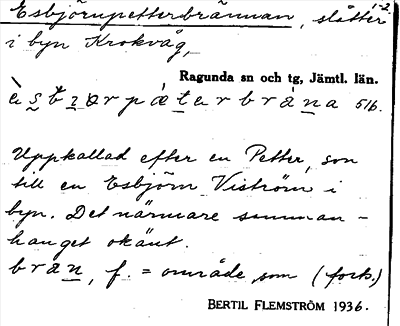 Esbjörnpetterbrännan, slåtter 1-2
i byn Krokvåg,
Ragunda sn och tg, Jämtl. län.
516.
Uppkallad efter en Petter, son
till en Esbjörn Viström i
byn. Det närmare samman-
hanget okänt.
brän, f. = område som (forts.)
BERTIL FLEMSTRÖM 1936.